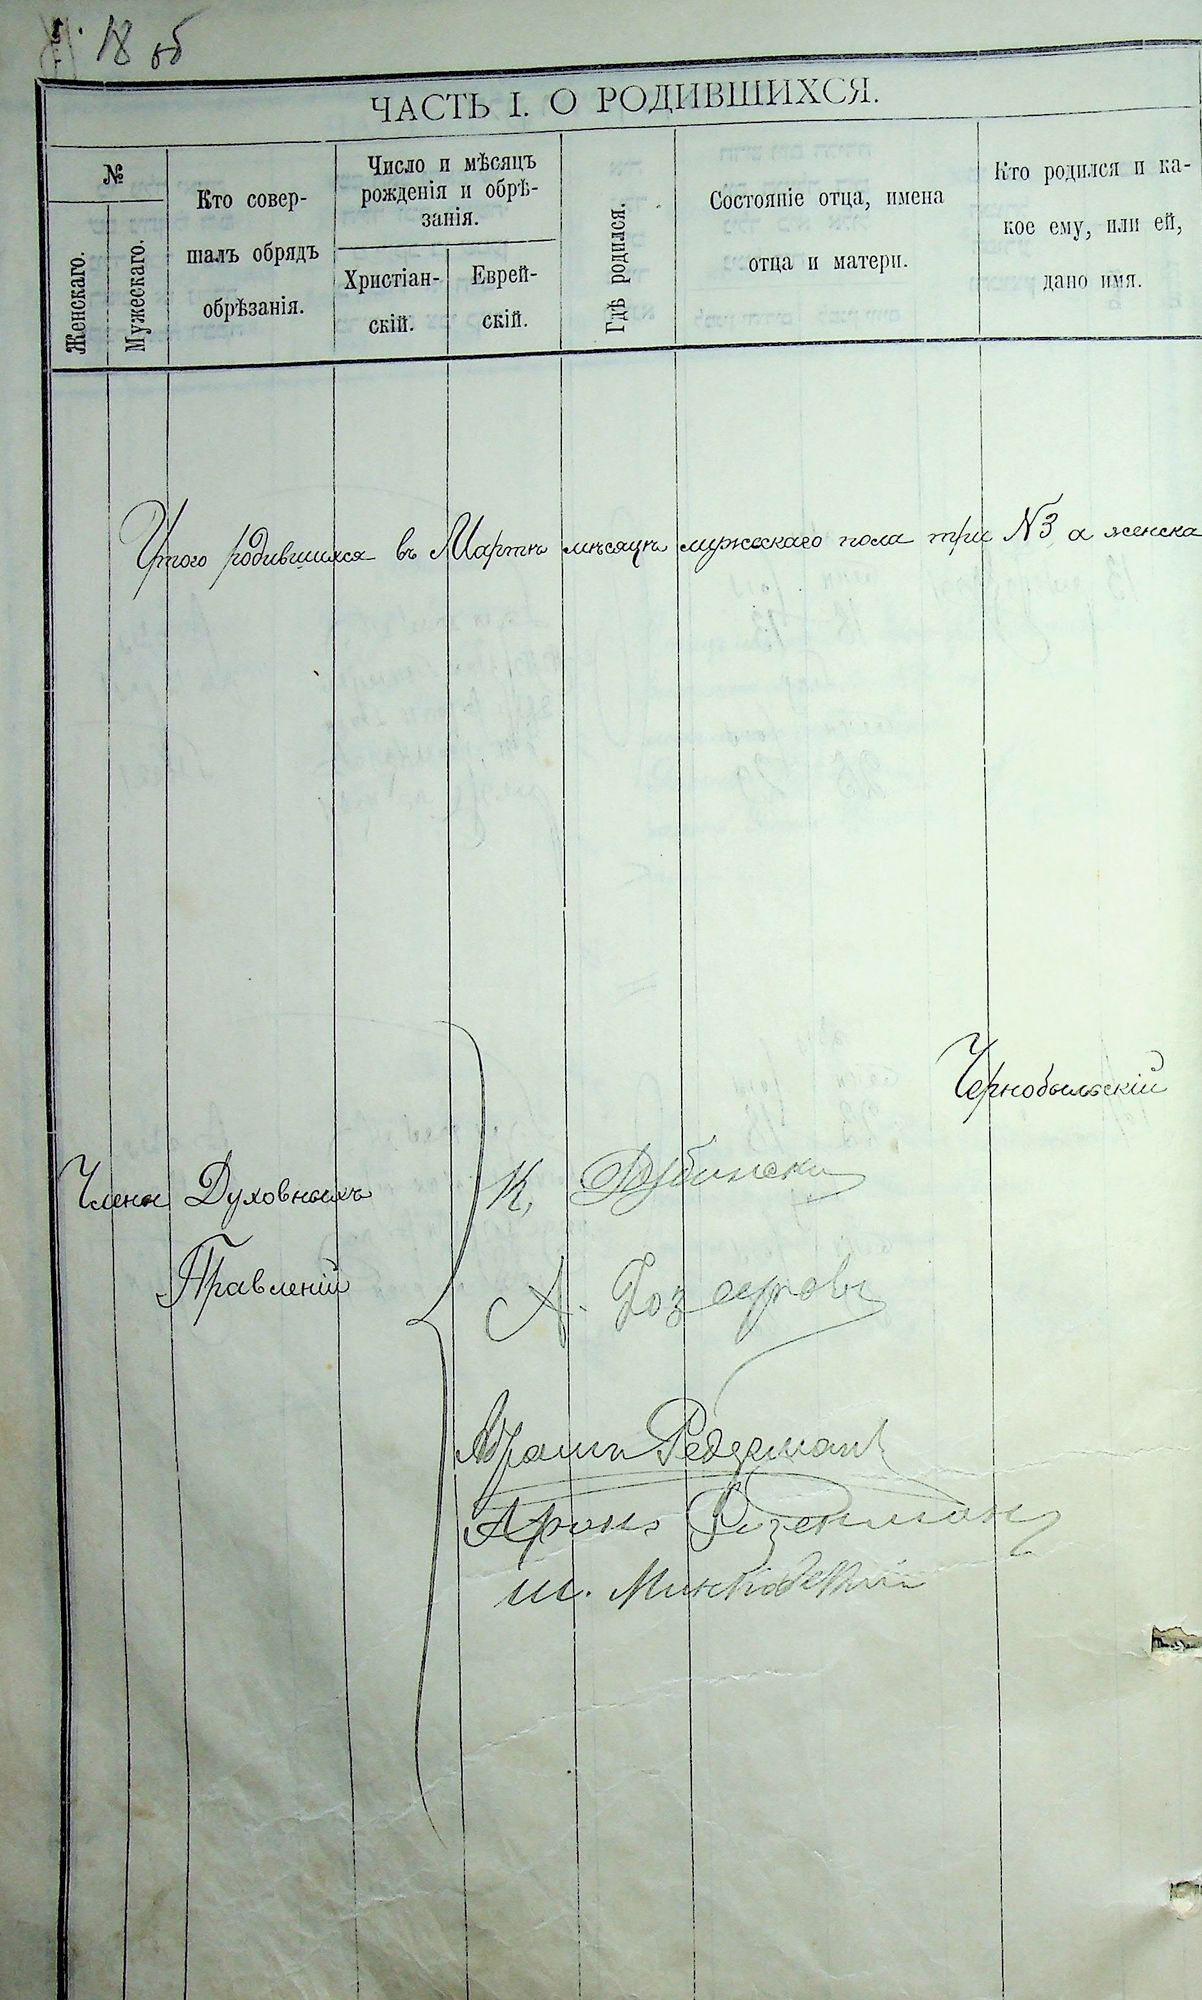 18 об
ЧАСТЬ I. О РОДИВШИХСЯ.
№
Женскаго.
Мужескаго.
Кто совер-
шалъ обрядъ
обрѣзанія.
Число и мѣсяцъ
рожденія и обрѣ-
занія.
Христіан-
скій.
Еврей-
скій.
Гдѣ родился.
Состояніе отца, имена
отца и матери.
Кто родился и ка-
кое ему, или ей,
дано имя.
Итого родившихся въ Мартѣ мѣсяцѣ мужескаго пола три №3 а женска
Чернобыльскій
Члены Духовныхъ
Правленій
К. Дубински
А.
Абрамъ Редерман
Аронъ Розенман
Ш.